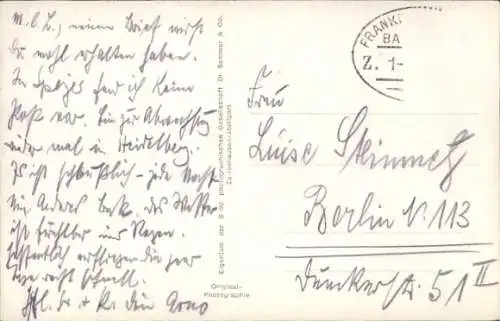 m. l. L., meinen Brief wirst
Du wohl erhalten haben.
In Speyer fand ich keine
Post vor. Zur Abwechslung
wieder mal in Heidelberg.
Es ist scheußlich – jede Nacht
ein anderes Bett. Das Wetter
ist furchtbar und Regen.
Hoffentlich verfliegen die paar
Tage recht schnell.
Hzl. Gr. + K. Dein Arno
Eigentum der Südd. photographischen Gesellschaft Dr. Sommer & Co.
Zuffenhausen-Stuttgart
Original-
Photographie
FRANKF
BA
Z. 1-
Frau
Luise Steinmetz
Berlin N. 113
Dunckerstr. 51 II